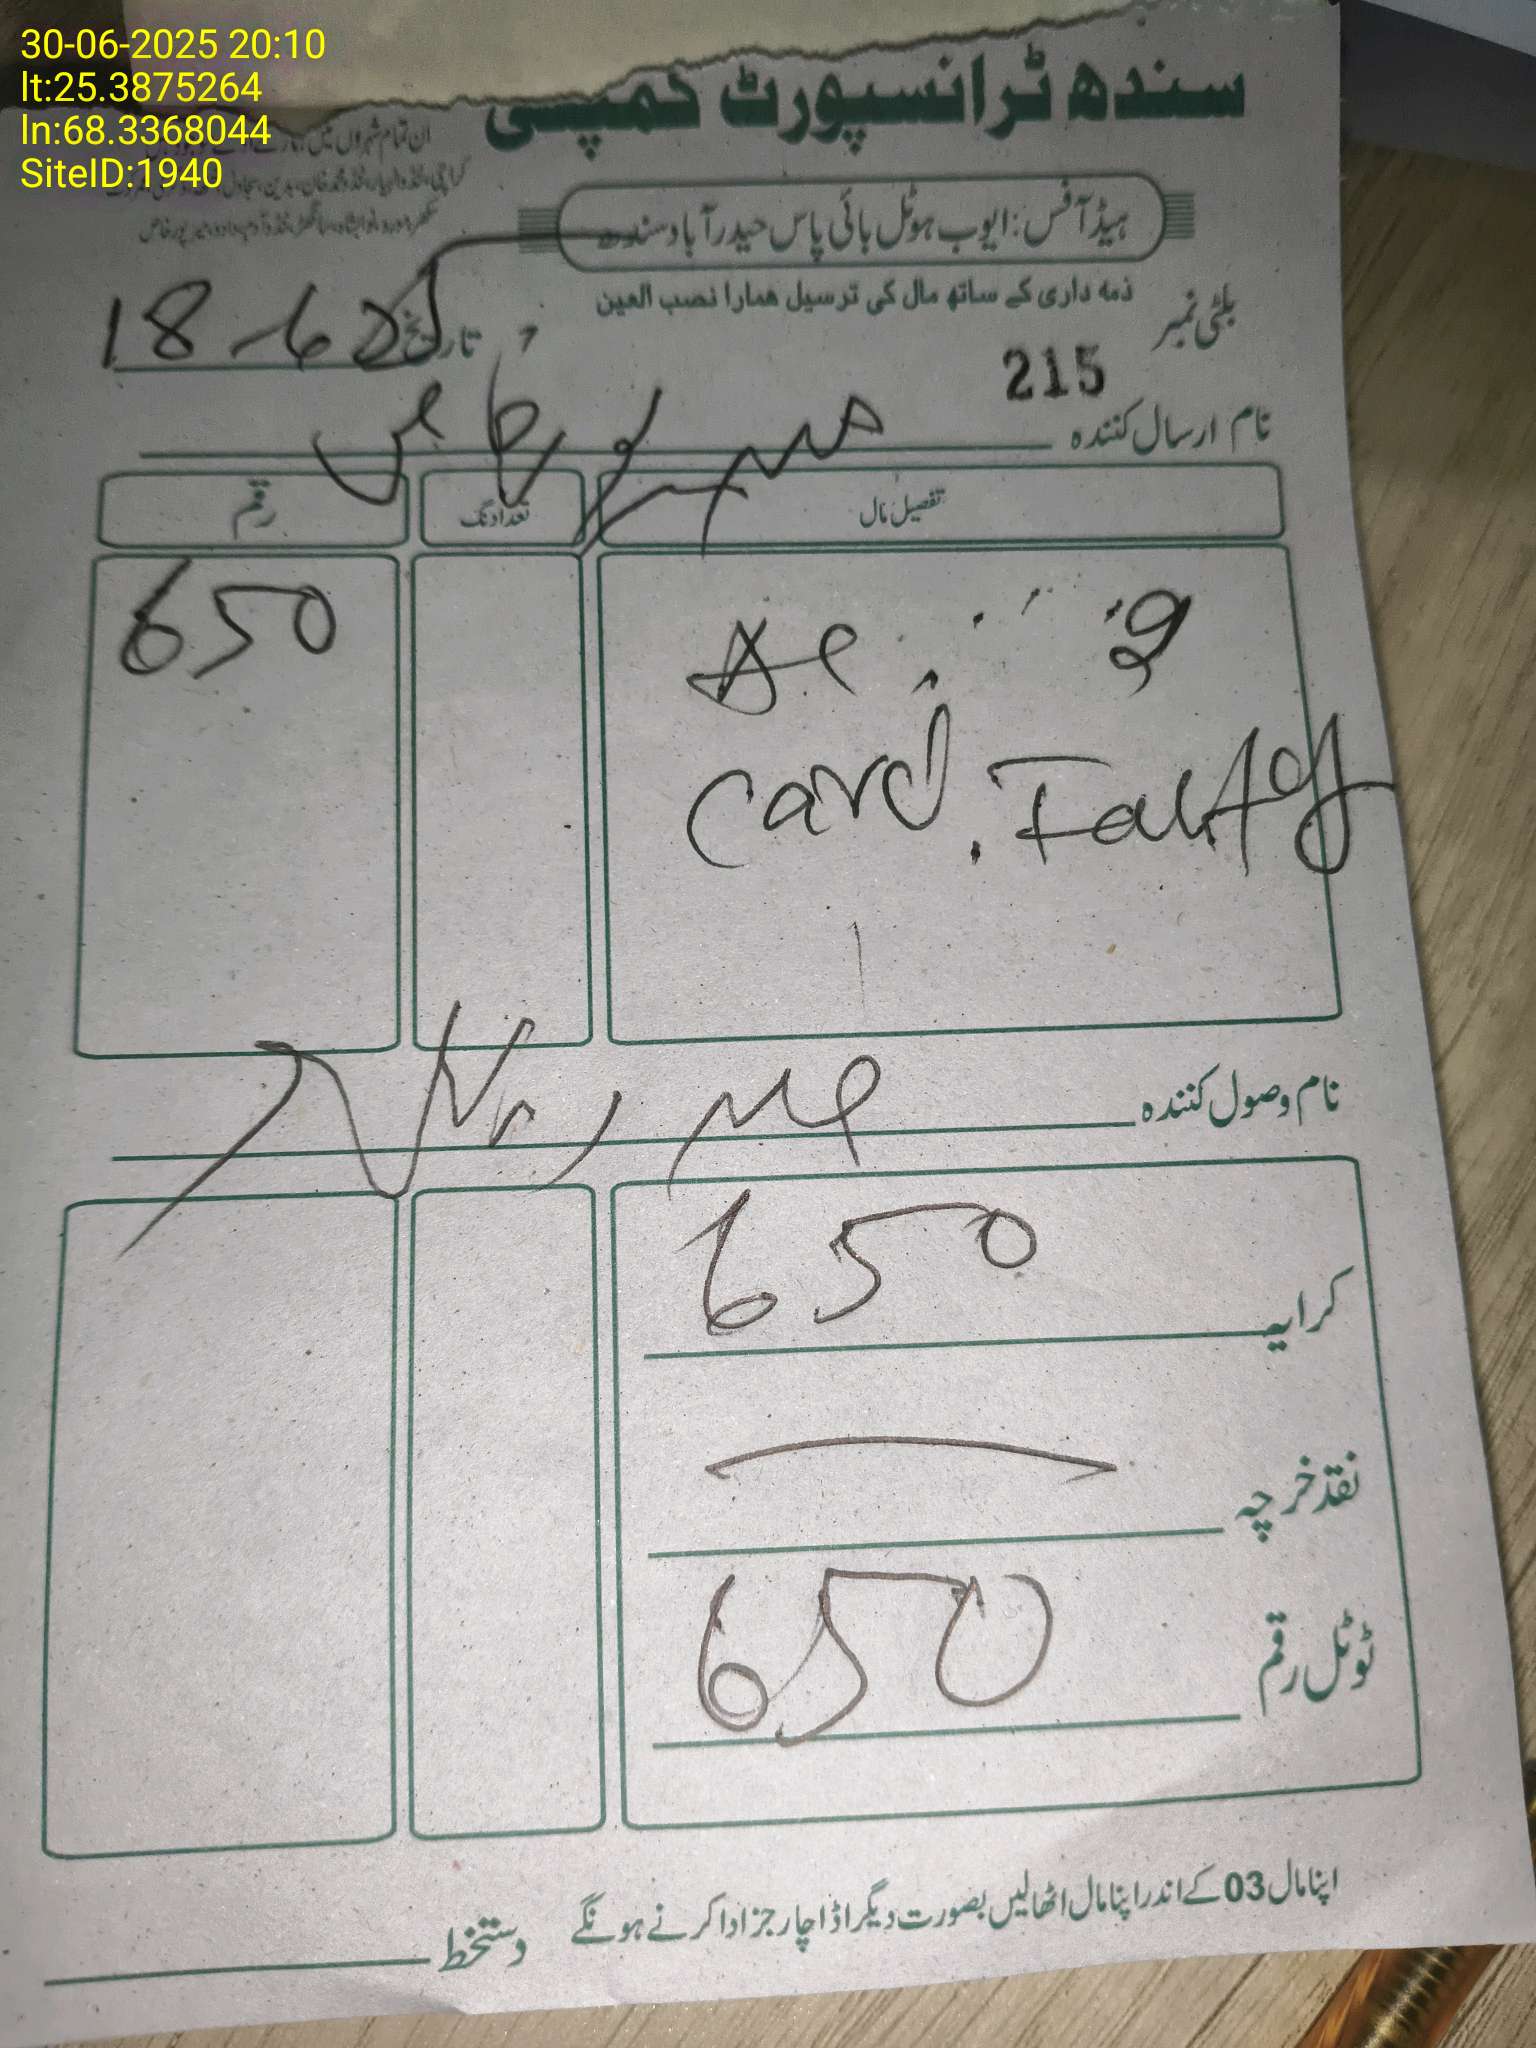 30-06-2025 20:10
lt:25.3875264
ln:68.3368044
SiteID:1940
سندھ ٹرانسپورٹ کمپنی
ان تمام شہروں میں
کراچی، ٹنڈوالہیار، ٹنڈو محمد خان، بدین، سجاول
سکھر، مورو، نوابشاہ، سانگھڑ، ٹنڈو آدم، دادو، میرپورخاص
ہیڈ آفس: ایوب ہوٹل بائی پاس حیدرآباد سندھ
ذمہ داری کے ساتھ مال کی ترسیل ہمارا نصب العین
بلٹی نمبر 215
تاریخ 18-6-25
نام ارسال کنندہ میرپورخاص
تفصیل مال تعداد نگ رقم
650
card. Faulty
نام وصول کنندہ
کرایہ 650
نقد خرچہ
ٹوٹل رقم 650
اپنا مال 03 کے اندر اپنا مال اٹھالیں بصورت دیگر اڈا چارجز ادا کرنے ہونگے
دستخط